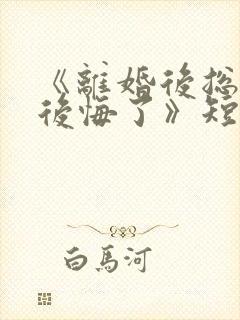 《離婚後总
後悔了》短
白馬河